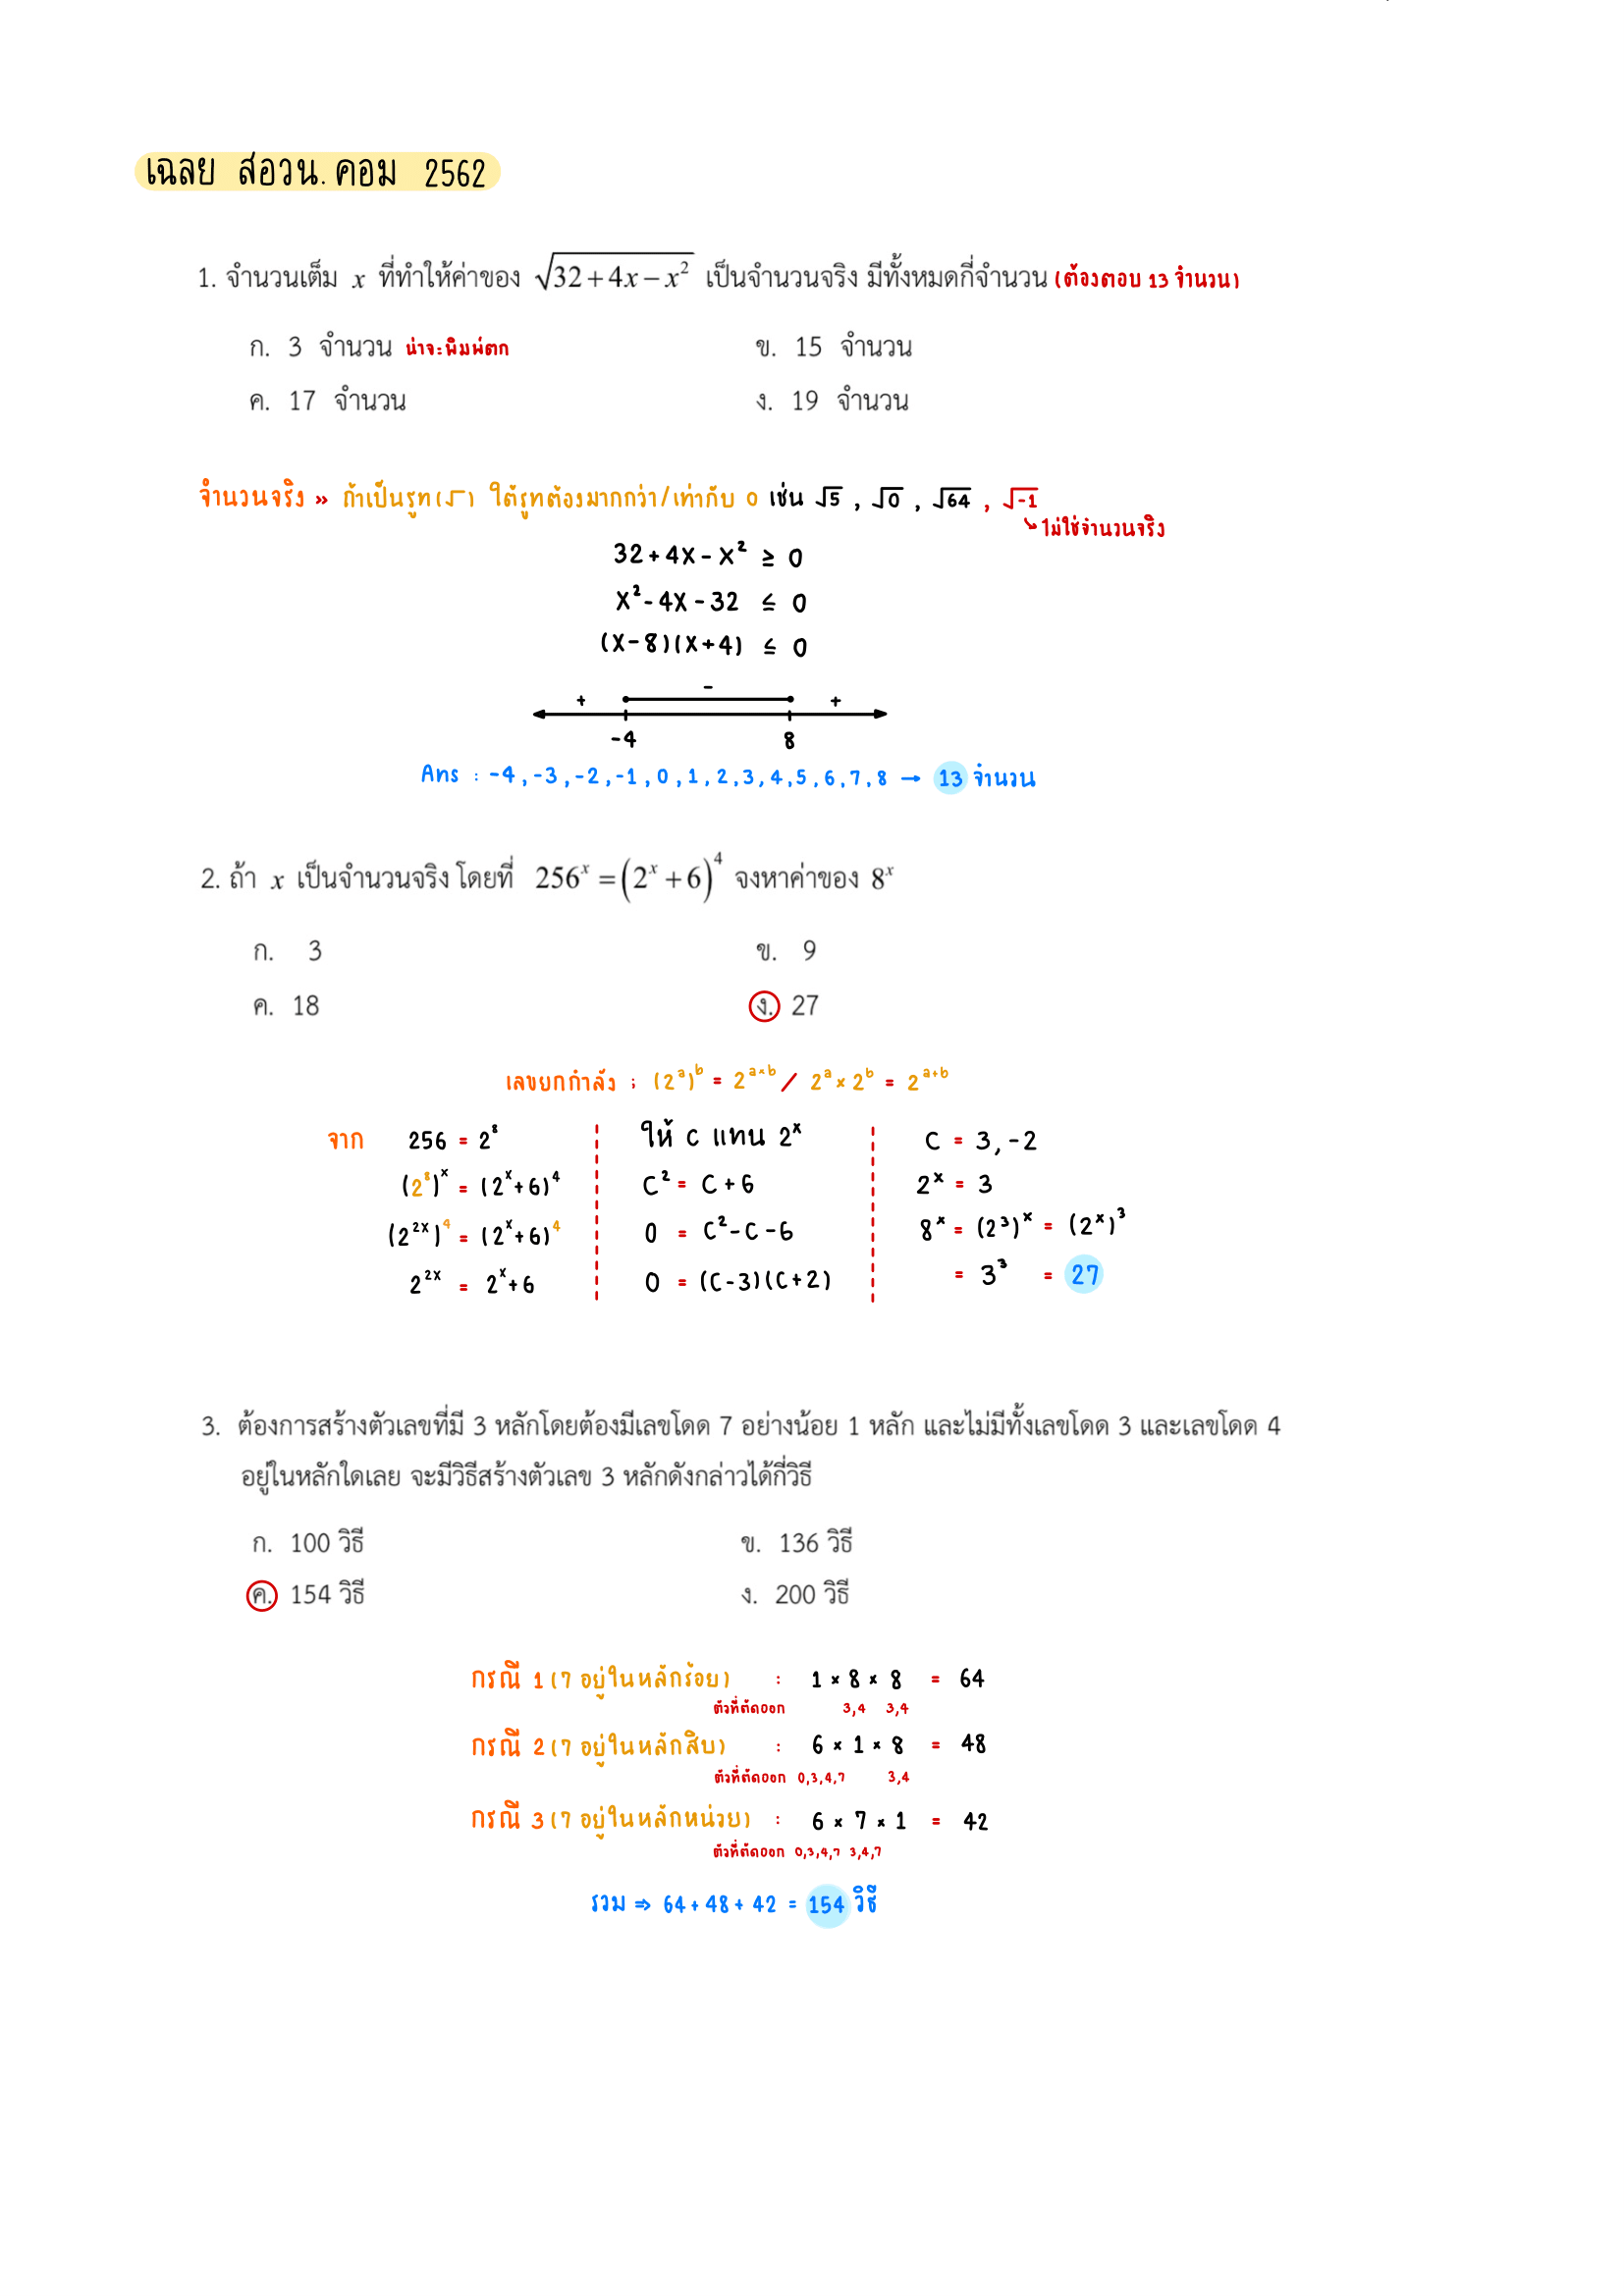 เฉลย สอวน. คอม 2562
1. จำนวนเต็ม x ที่ทำให้ค่าของ √(32+4x−x²) เป็นจำนวนจริง มีทั้งหมดกี่จำนวน (ต้องตอบ 13 จำนวน)
ก. 3 จำนวน น่าจะพิมพ์ตก ข. 15 จำนวน
ค. 17 จำนวน ง. 19 จำนวน
จำนวนจริง » ถ้าเป็นรูท(√) ใต้รูทต้องมากกว่า/เท่ากับ 0 เช่น √5 , √0 , √64 , √-1
ไม่ใช่จำนวนจริง
32+4x-x² ≥ 0
x²-4x-32 ≤ 0
(x-8)(x+4) ≤ 0
+ - +
-4 8
Ans : -4,-3,-2,-1,0,1,2,3,4,5,6,7,8 → 13 จำนวน
2. ถ้า x เป็นจำนวนจริง โดยที่ 256ˣ = (2ˣ+6)⁴ จงหาค่าของ 8ˣ
ก. 3 ข. 9
ค. 18 ง. 27
เลขยกกำลัง ; (2ᵃ)ᵇ = 2ᵃˣᵇ / 2ᵃ × 2ᵇ = 2ᵃ⁺ᵇ
จาก 256 = 2⁸ ให้ C แทน 2ˣ C = 3,-2
(2⁸)ˣ = (2ˣ+6)⁴ C² = C+6 2ˣ = 3
(2²ˣ)⁴ = (2ˣ+6)⁴ 0 = C²-C-6 8ˣ = (2³)ˣ = (2ˣ)³
2²ˣ = 2ˣ+6 0 = (C-3)(C+2) = 3³ = 27
3. ต้องการสร้างตัวเลขที่มี 3 หลักโดยต้องมีเลขโดด 7 อย่างน้อย 1 หลัก และไม่มีทั้งเลขโดด 3 และเลขโดด 4
อยู่ในหลักใดเลย จะมีวิธีสร้างตัวเลข 3 หลักดังกล่าวได้กี่วิธี
ก. 100 วิธี ข. 136 วิธี
ค. 154 วิธี ง. 200 วิธี
กรณี 1 (7 อยู่ในหลักร้อย) : 1 × 8 × 8 = 64
ตัวที่ตัดออก 3,4 3,4
กรณี 2 (7 อยู่ในหลักสิบ) : 6 × 1 × 8 = 48
ตัวที่ตัดออก 0,3,4,7 3,4
กรณี 3 (7 อยู่ในหลักหน่วย) : 6 × 7 × 1 = 42
ตัวที่ตัดออก 0,3,4,7 3,4,7
รวม ⇒ 64+48+42 = 154 วิธี